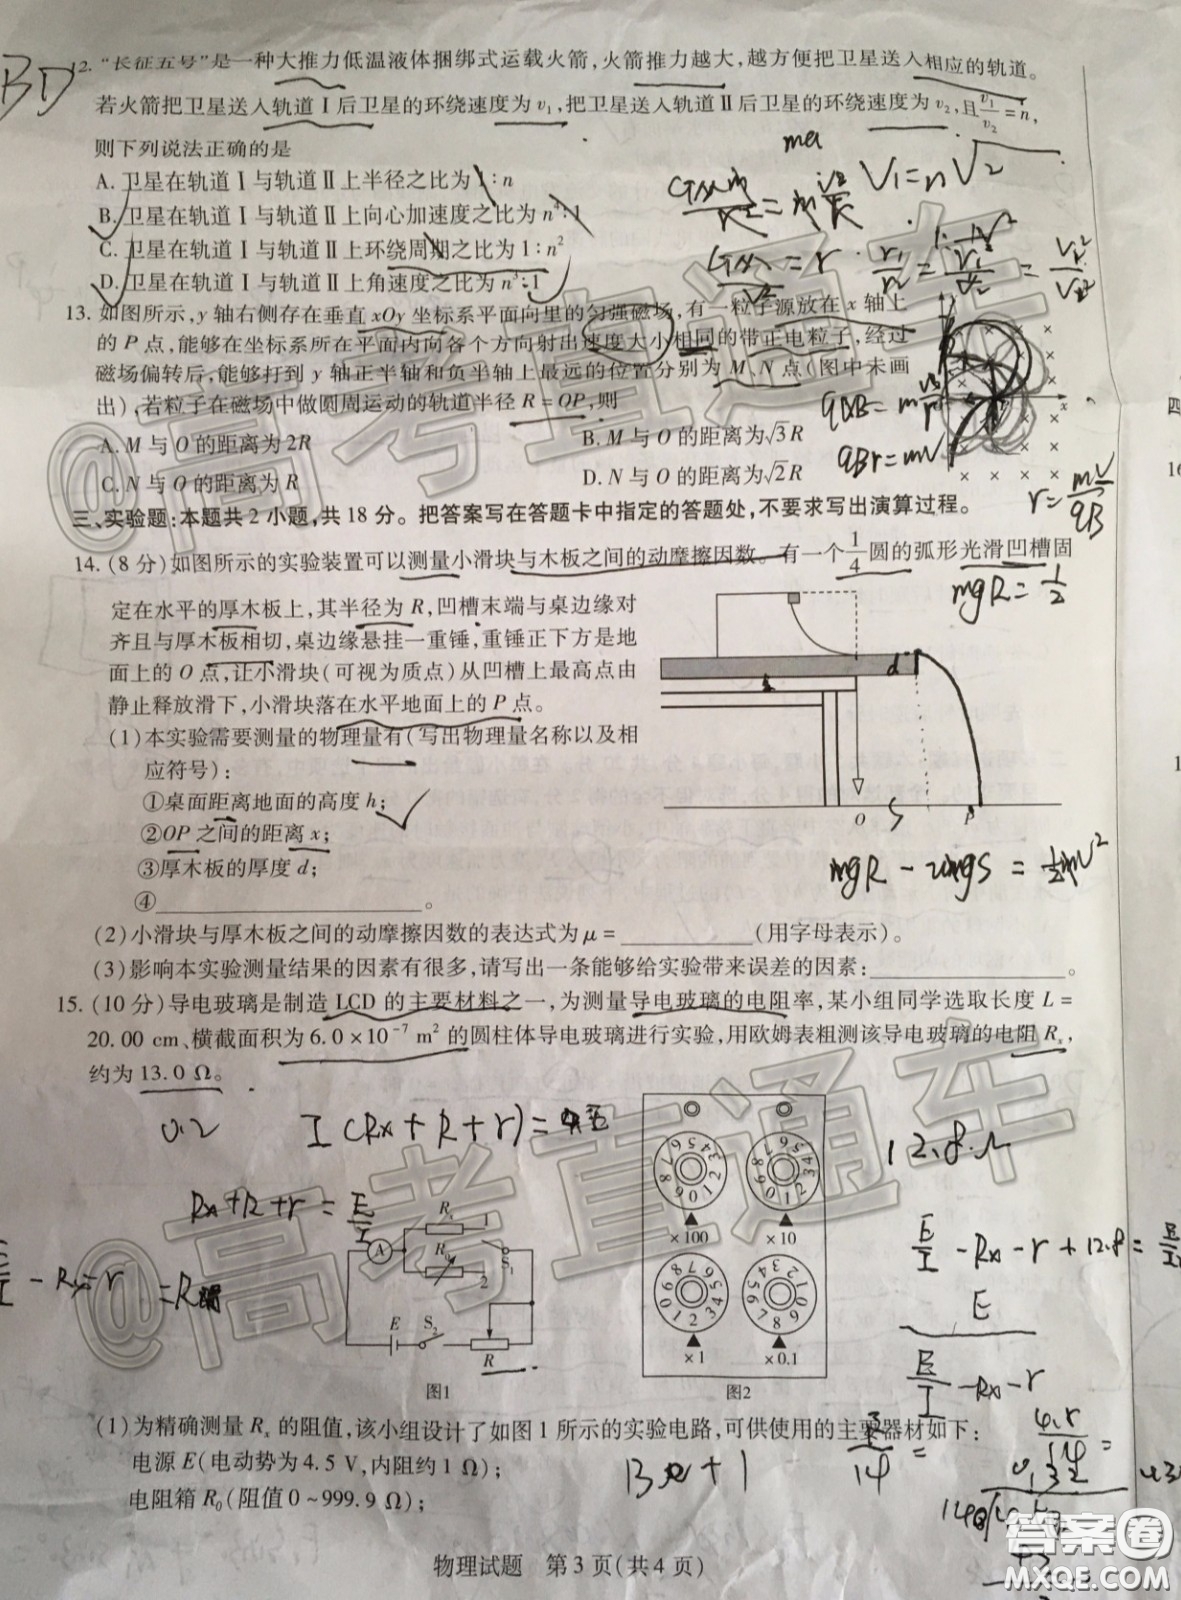 BD
12. "长征五号"是一种大推力低温液体捆绑式运载火箭,火箭推力越大,越方便把卫星送入相应的轨道。
若火箭把卫星送入轨道Ⅰ后卫星的环绕速度为v₁,把卫星送入轨道Ⅱ后卫星的环绕速度为v₂,且v₁/v₂=n,
则下列说法正确的是
A. 卫星在轨道Ⅰ与轨道Ⅱ上半径之比为1:n
B. 卫星在轨道Ⅰ与轨道Ⅱ上向心加速度之比为n⁴:1
C. 卫星在轨道Ⅰ与轨道Ⅱ上环绕周期之比为1:n²
D. 卫星在轨道Ⅰ与轨道Ⅱ上角速度之比为n³:1
13. 如图所示,y轴右侧存在垂直xOy坐标系平面向里的匀强磁场,有一粒子源放在x轴上
的P点,能够在坐标系所在平面内向各个方向射出速度大小相同的带正电粒子,经过
磁场偏转后,能够打到y轴正半轴和负半轴上最远的位置分别为M、N点(图中未画
出),若粒子在磁场中做圆周运动的轨道半径R=OP,则
A. M与O的距离为2R
B. M与O的距离为√3R
C. N与O的距离为R
D. N与O的距离为√2R
qBr=mv
r=mv/qB
三、实验题:本题共2小题,共18分。把答案写在答题卡中指定的答题处,不要求写出演算过程。
14. (8分)如图所示的实验装置可以测量小滑块与木板之间的动摩擦因数。有一个1/4圆的弧形光滑凹槽固
mgR=1/2
定在水平的厚木板上,其半径为R,凹槽末端与桌边缘对
齐且与厚木板相切,桌边缘悬挂一重锤,重锤正下方是地
面上的O点,让小滑块(可视为质点)从凹槽上最高点由
静止释放滑下,小滑块落在水平地面上的P点。
(1)本实验需要测量的物理量有(写出物理量名称以及相
应符号):
①桌面距离地面的高度h;
②OP之间的距离x;
③厚木板的厚度d;
④____________。
d
O S P
(2)小滑块与厚木板之间的动摩擦因数的表达式为μ=__________(用字母表示)。
(3)影响本实验测量结果的因素有很多,请写出一条能够给实验带来误差的因素:____________。
15. (10分)导电玻璃是制造LCD的主要材料之一,为测量导电玻璃的电阻率,某小组同学选取长度L=
20.00 cm、横截面积为6.0×10⁻⁷ m²的圆柱体导电玻璃进行实验,用欧姆表粗测该导电玻璃的电阻Rₓ,
约为13.0 Ω。
0.2
Rx+R+r=E/I
A Rₓ 1 R₀ 2 S₁
E S₂ R
图1
×100 ×10
×1 ×0.1
图2
(1)为精确测量Rₓ的阻值,该小组设计了如图1所示的实验电路,可供使用的主要器材如下:
电源E(电动势为4.5 V,内阻约1 Ω);
电阻箱R₀(阻值0~999.9 Ω);
物理试题 第3页(共4页)
@高考直通车
@高考直通车
答案圈
MXQE.COM